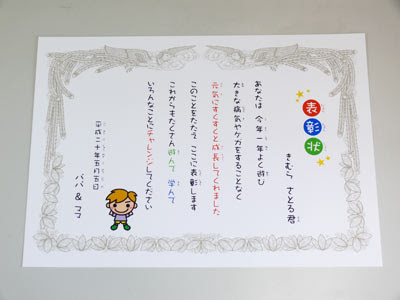 表彰状
きむら さとる君
あなたは 今年一年よく遊び
大きな病気やケガをすることなく
元気にすくすくと成長してくれました
このことをたたえ ここに表彰します
これからもたくさん遊んで 学んで
いろんなことにチャレンジしてください
平成二十年五月五日
パパ & ママ